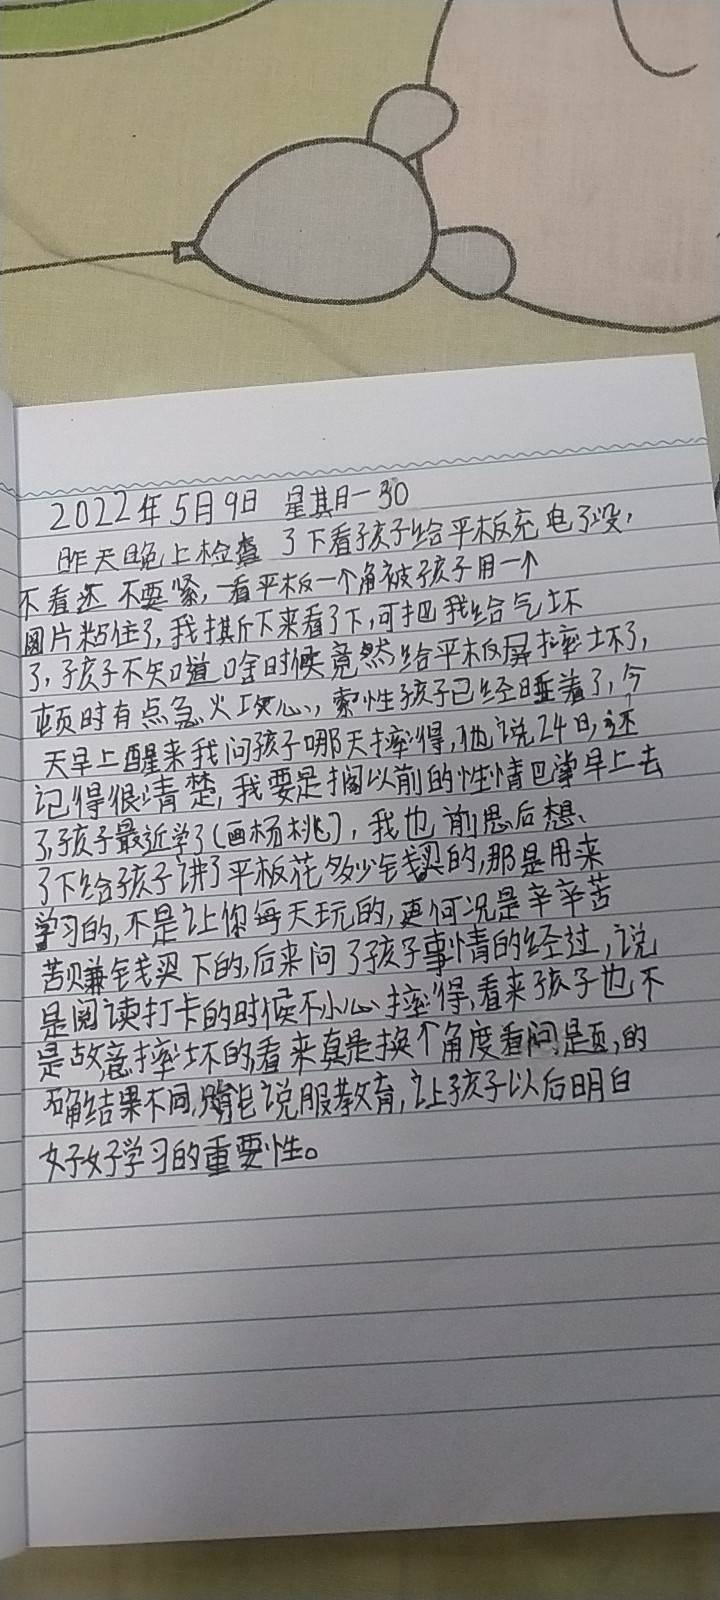 2022年5月9日 星期一 30
昨天晚上检查了下看孩子给平板充电了没,
不看还不要紧,一看平板一个角被孩子用一个
图片粘住了,我撕下来看了下,可把我给气坏
了,孩子不知道啥时候竟然给平板屏摔坏了,
顿时有点急火攻心,索性孩子已经睡着了,今
天早上醒来我问孩子哪天摔得,他说24日,还
记得很清楚,我要是搁以前的性情巴掌早上去
了,孩子最近学了(画杨桃),我也前思后想、
了下给孩子讲了平板花多少钱买的,那是用来
学习的,不是让你每天玩的,更何况是辛辛苦
苦赚钱买下的,后来问了孩子事情的经过,说
是阅读打卡的时候不小心摔得,看来孩子也不
是故意摔坏的,看来真是换个角度看问题,的
确结果不同,只能说服教育,让孩子以后明白
好好学习的重要性。